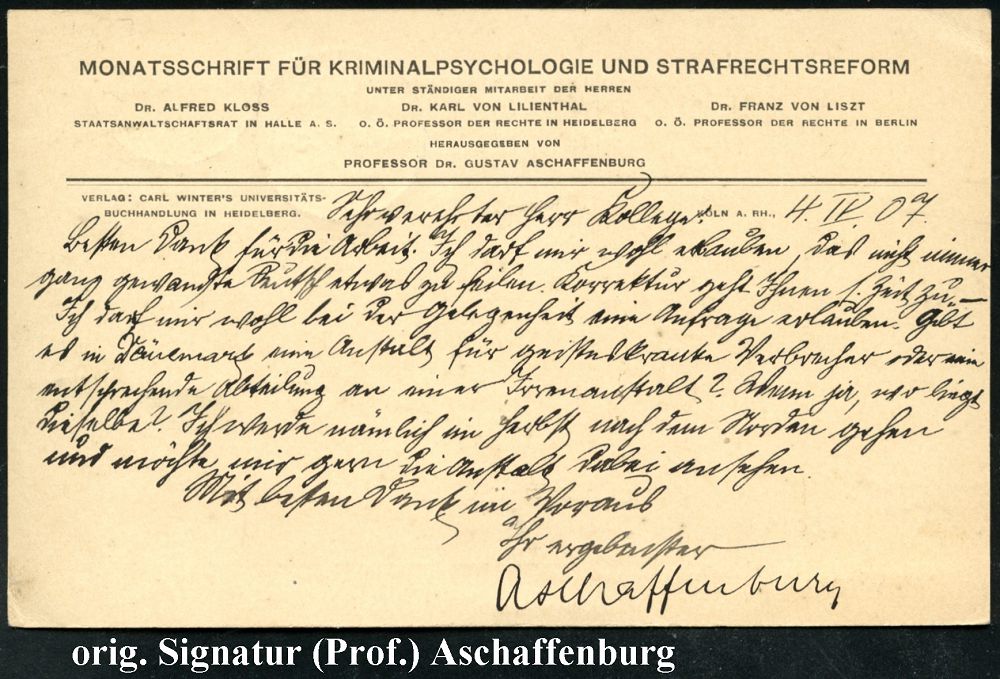 MONATSSCHRIFT FÜR KRIMINALPSYCHOLOGIE UND STRAFRECHTSREFORM
UNTER STÄNDIGER MITARBEIT DER HERREN
DR. ALFRED KLOSS DR. KARL VON LILIENTHAL DR. FRANZ VON LISZT
STAATSANWALTSCHAFTSRAT IN HALLE A. S. O. Ö. PROFESSOR DER RECHTE IN HEIDELBERG O. Ö. PROFESSOR DER RECHTE IN BERLIN
HERAUSGEGEBEN VON
PROFESSOR DR. GUSTAV ASCHAFFENBURG
VERLAG: CARL WINTER'S UNIVERSITÄTS-
BUCHHANDLUNG IN HEIDELBERG.
KÖLN A. RH., 4. IV. 07.
Sehr verehrter Herr Kollege!
Besten Dank für die Arbeit. Ich darf mir wohl erlauben, das nicht immer
ganz gewandte Deutsch etwas zu feilen. Korrektur geht Ihnen s. Zeit zu. –
Ich darf mir wohl bei der Gelegenheit eine Anfrage erlauben. Gibt
es in Dänemark eine Anstalt für geisteskranke Verbrecher oder eine
entsprechende Abteilung an einer Irrenanstalt? Wenn ja, wo liegt
dieselbe? Ich werde nämlich im Herbst nach dem Norden gehen
und möchte mir gern die Anstalt dabei ansehen.
Mit besten Dank im Voraus
Ihr ergebenster
Aschaffenburg
orig. Signatur (Prof.) Aschaffenburg